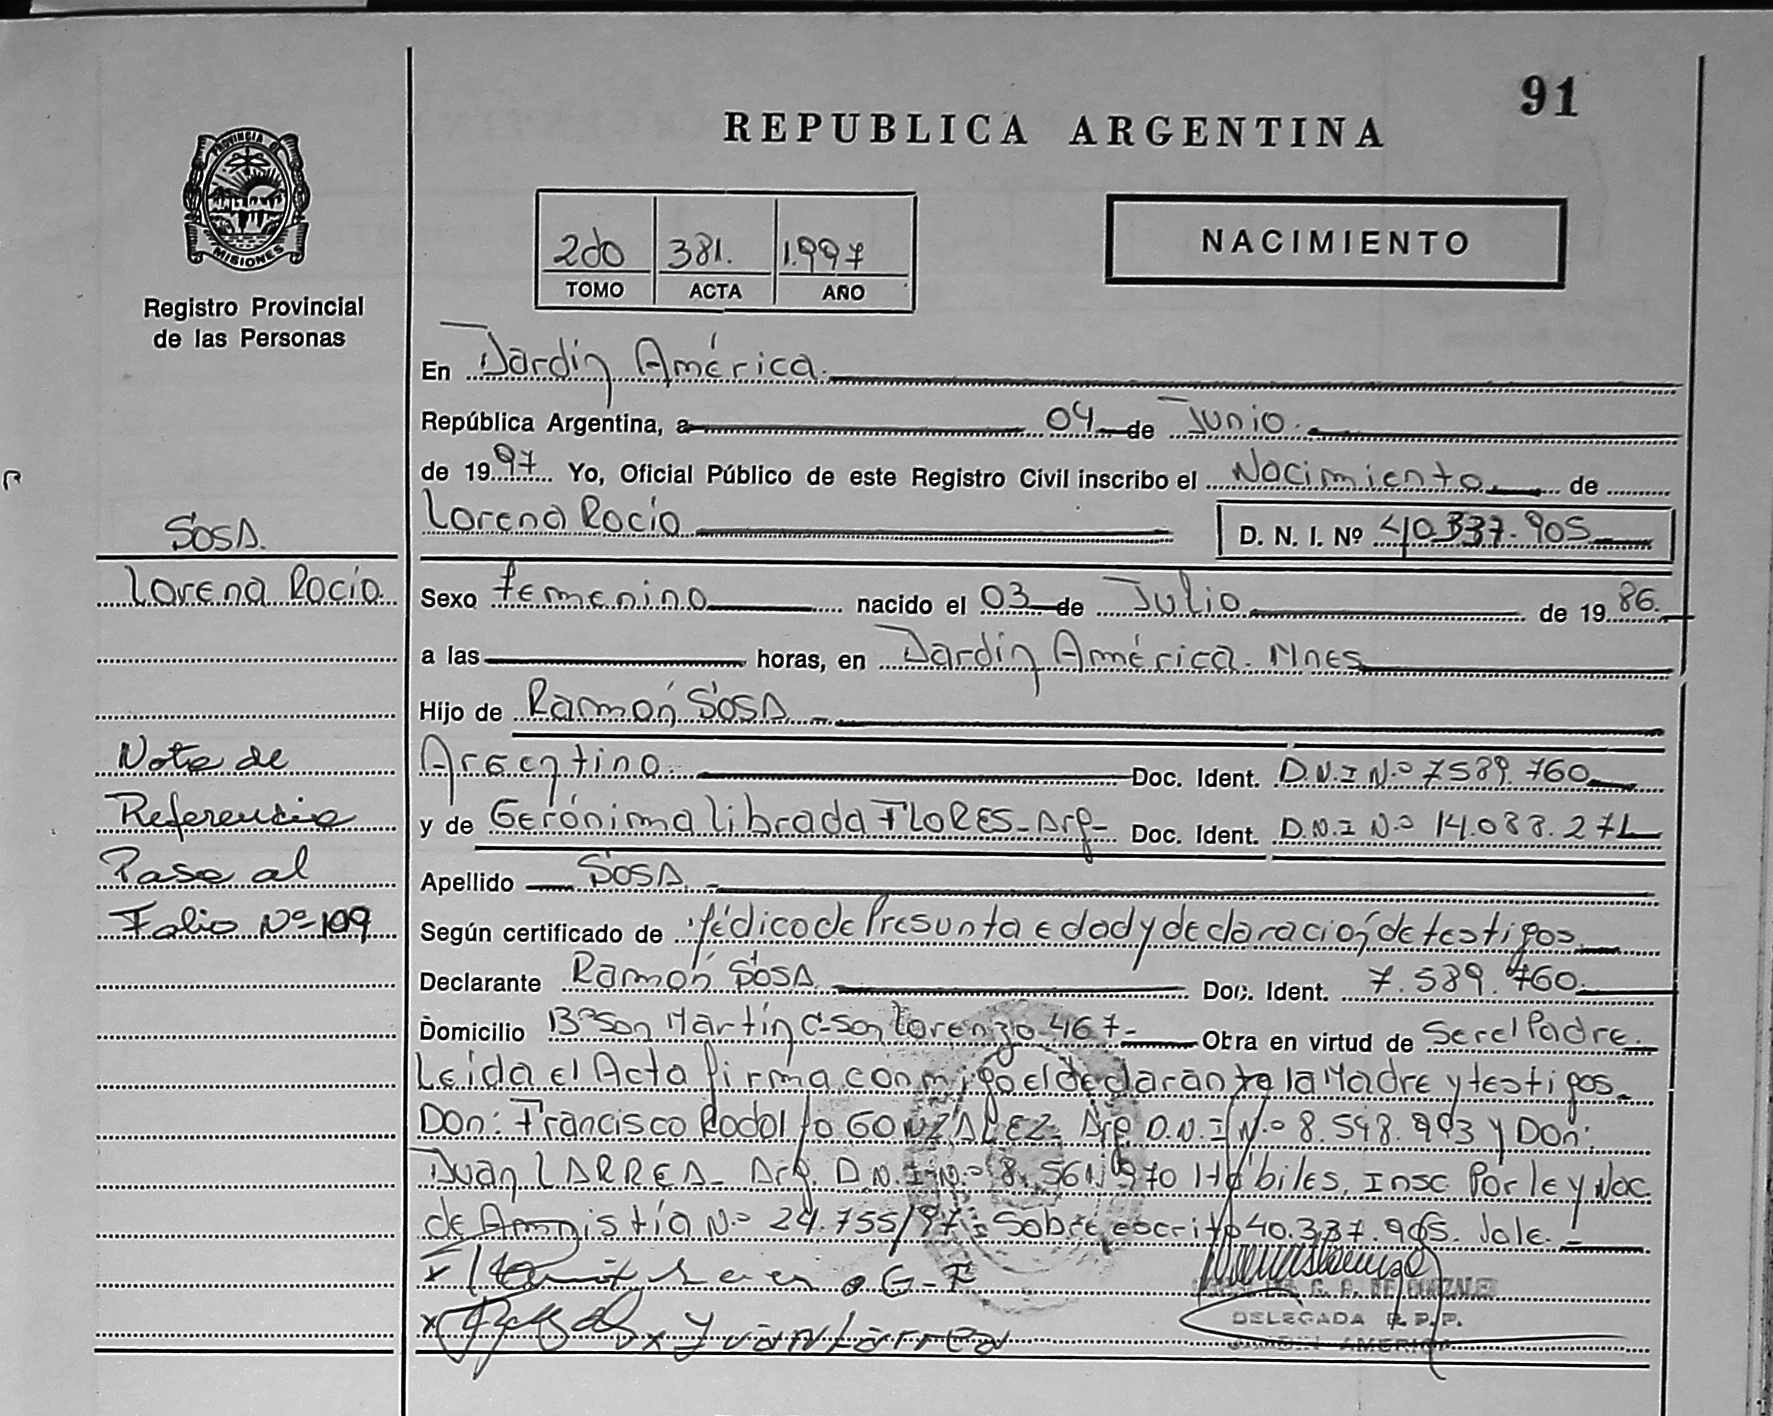 91
REPUBLICA ARGENTINA
PROVINCIA DE
MISIONES
Registro Provincial
de las Personas
2do 381. 1.997
TOMO ACTA AÑO
NACIMIENTO
En Jardín América.
República Argentina, a 04 de Junio.
de 1997. Yo, Oficial Público de este Registro Civil inscribo el Nacimiento de
Lorena Rocío D. N. I. Nº 40.337.905
SOSA.
Lorena Rocío.
Sexo femenino nacido el 03 de Julio de 1986.
a las horas, en Jardín América. Mnes
Hijo de Ramón SOSA
Argentino. Doc. Ident. D.N.I N.º 7589.760
y de Gerónima librada FLORES - Arg - Doc. Ident. D.N.I N.º 14.088.271
Apellido SOSA -
Según certificado de Médico de Presunta edad y declaración de testigos.
Declarante Ramón SOSA Doc. Ident. 7.589.760.
Domicilio Bº San Martín C-San Lorenzo 467- Obra en virtud de Ser el Padre.
Leída el Acta firma conmigo el declarante la Madre y testigos.
Don: Francisco Rodolfo GONZALEZ. Arg. D.N.I N.º 8.548.993 y Don:
Juan LARREA - Arg. D.N.I N.º 8.561.970 Hábiles. Insc. Por ley Nac.
de Amnistía N.º 24.755/97. Sobre escrito 40.337.905. Vale.
Nota de
Referencia
Pase al
Folio Nº 109
G-F
x x Juan Larrea
C. G. DE GONZALEZ
DELEGADA R.P.P.
JARDIN AMERICA